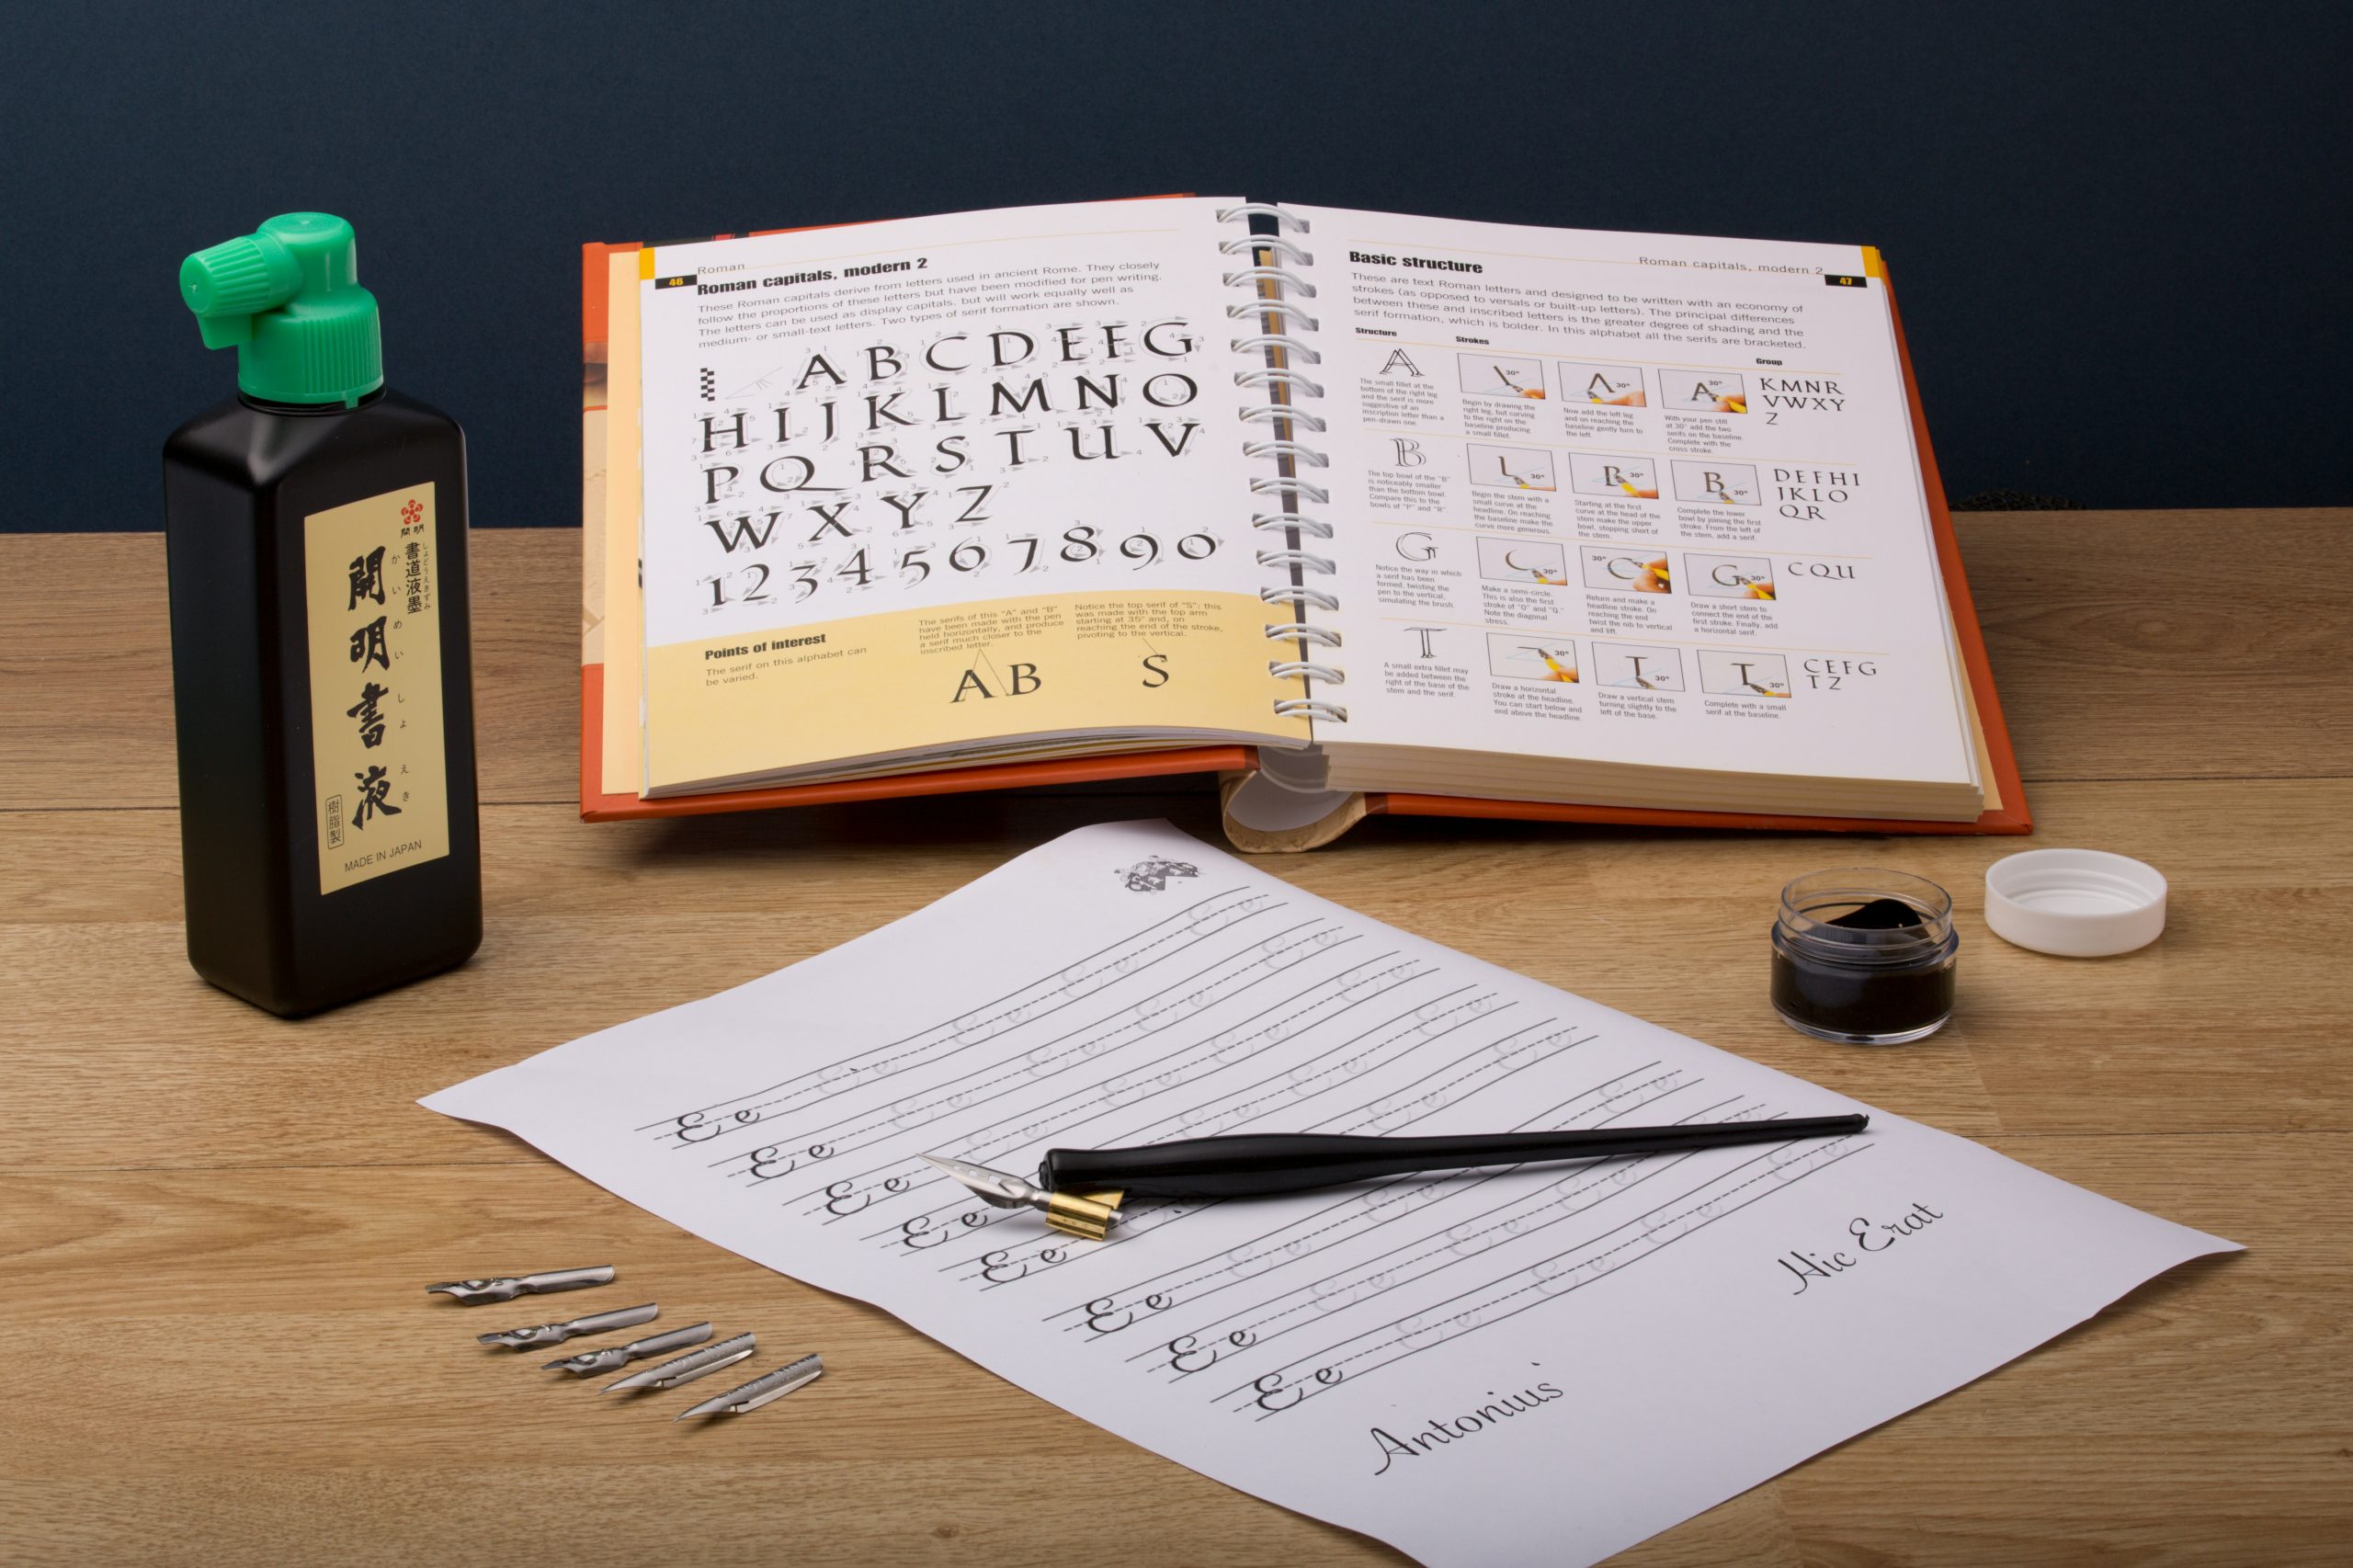 開明
書道液墨
しょどうえきずみ
開明書液
かいめいしょえき
樹脂製
MADE IN JAPAN
46
Roman
Roman capitals, modern 2
These Roman capitals derive from letters used in ancient Rome. They closely
follow the proportions of these letters but have been modified for pen writing.
The letters can be used as display capitals, but will work equally well as
medium- or small-text letters. Two types of serif formation are shown.
A B C D E F G
H I J K L M N O
P Q R S T U V
W X Y Z
1 2 3 4 5 6 7 8 9 0
Points of interest
The serif on this alphabet can
be varied.
The serifs of this "A" and "B"
have been made with the pen
held horizontally, and produce
a serif much closer to the
inscribed letter.
A B
Notice the top serif of "S": this
was made with the top arm
starting at 35° and, on
reaching the end of the stroke,
pivoting to the vertical.
S
Roman capitals, modern 2
47
Basic structure
These are text Roman letters and designed to be written with an economy of
strokes (as opposed to versals or built-up letters). The principal differences
between these and inscribed letters is the greater degree of shading and the
serif formation, which is bolder. In this alphabet all the serifs are bracketed.
Structure
Strokes
Group
A
The small fillet at the
bottom of the right leg
and the serif is more
suggestive of an
inscription letter than a
pen-drawn one.
30°
Begin by drawing the
right leg, but curving
to the right on the
baseline producing
a small fillet.
30°
Now add the left leg
and on reaching the
baseline gently turn to
the left.
30°
With your pen still
at 30° add the two
serifs on the baseline.
Complete with the
cross stroke.
K M N R
V W X Y
Z
B
The top bowl of the "B"
is noticeably smaller
than the bottom bowl.
Compare this to the
bowls of "P" and "R"
30°
Begin the stem with a
small curve at the
headline. On reaching
the baseline make the
curve more generous.
30°
Starting at the first
curve at the head of the
stem make the upper
bowl, stopping short of
the stem.
30°
Complete the lower
bowl by joining the first
stroke. From the left of
the stem, add a serif.
D E F H I
J K L O
Q R
G
Notice the way in which
a serif has been
formed, twisting the
pen to the vertical,
simulating the brush.
30°
Make a semi-circle.
This is also the first
stroke of "O" and "Q."
Note the diagonal
stress.
30°
Return and make a
headline stroke. On
reaching the end
twist the nib to vertical
and lift.
30°
Draw a short stem to
connect the end of the
first stroke. Finally, add
a horizontal serif.
C Q U
T
A small extra fillet may
be added between the
right of the base of the
stem and the serif.
30°
Draw a horizontal
stroke at the headline.
You can start below and
end above the headline.
30°
Draw a vertical stem
turning slightly to the
left of the base.
30°
Complete with a small
serif at the baseline.
C E F G
T Z
Ee
Ee
Ee
Ee
Ee
Ee
Ee
Ee
Hic Erat
Antonius